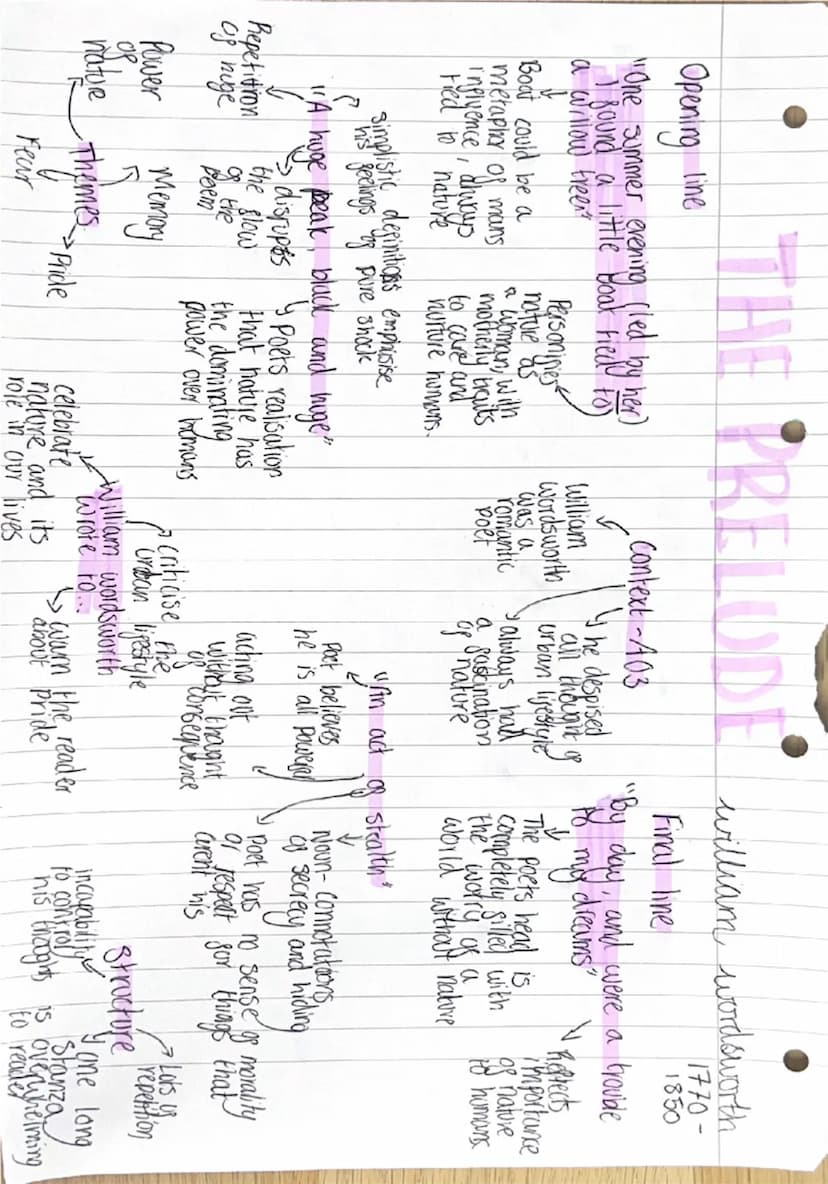 THE PRELUDE
william wordsworth
1770 -
1850
Opening line
"One summer evening (led by her)
I found a little boat tied to
a willow tree"
Boat could be a
metaphor of mans
influence, always
tied to nature
Personifies
nature as
a woman, with
motherly traits
to care and
nurture humans.
Context - AO3
William
wordsworth
was a
romantic
poet
he despised
all thought of
urban lifestyle
always had
a fascination
of nature
Final line
"By day, and were a trouble
to my dreams"
The poets head is
completely filled with
the worry of a
world without nature
Reflects
importance
of nature
to humans.
simplistic definitions emphasise
his feelings of pure shock
"A huge peak, black and huge"
Repetition
of huge
disrupts
the flow
of the
poem
Poets realisation
that nature has
the dominating
power over humans
"An act of stealth"
Poet believes
he is all powerful
acting out
without thought
of consequence
Noun - connotations
of secrecy and hiding
Poet has no sense of morality
or respect for things that
arent his
Themes
Power
of
nature
Memory
Fear
Pride
William wordsworth
wrote to...
criticise the
urban lifestyle
celebrate
nature and its
role in our lives
warn the reader
about pride
Structure
Lots of
repetition
incapability
to control
his thoughts
one long
stanza
is overwhelming
to reader